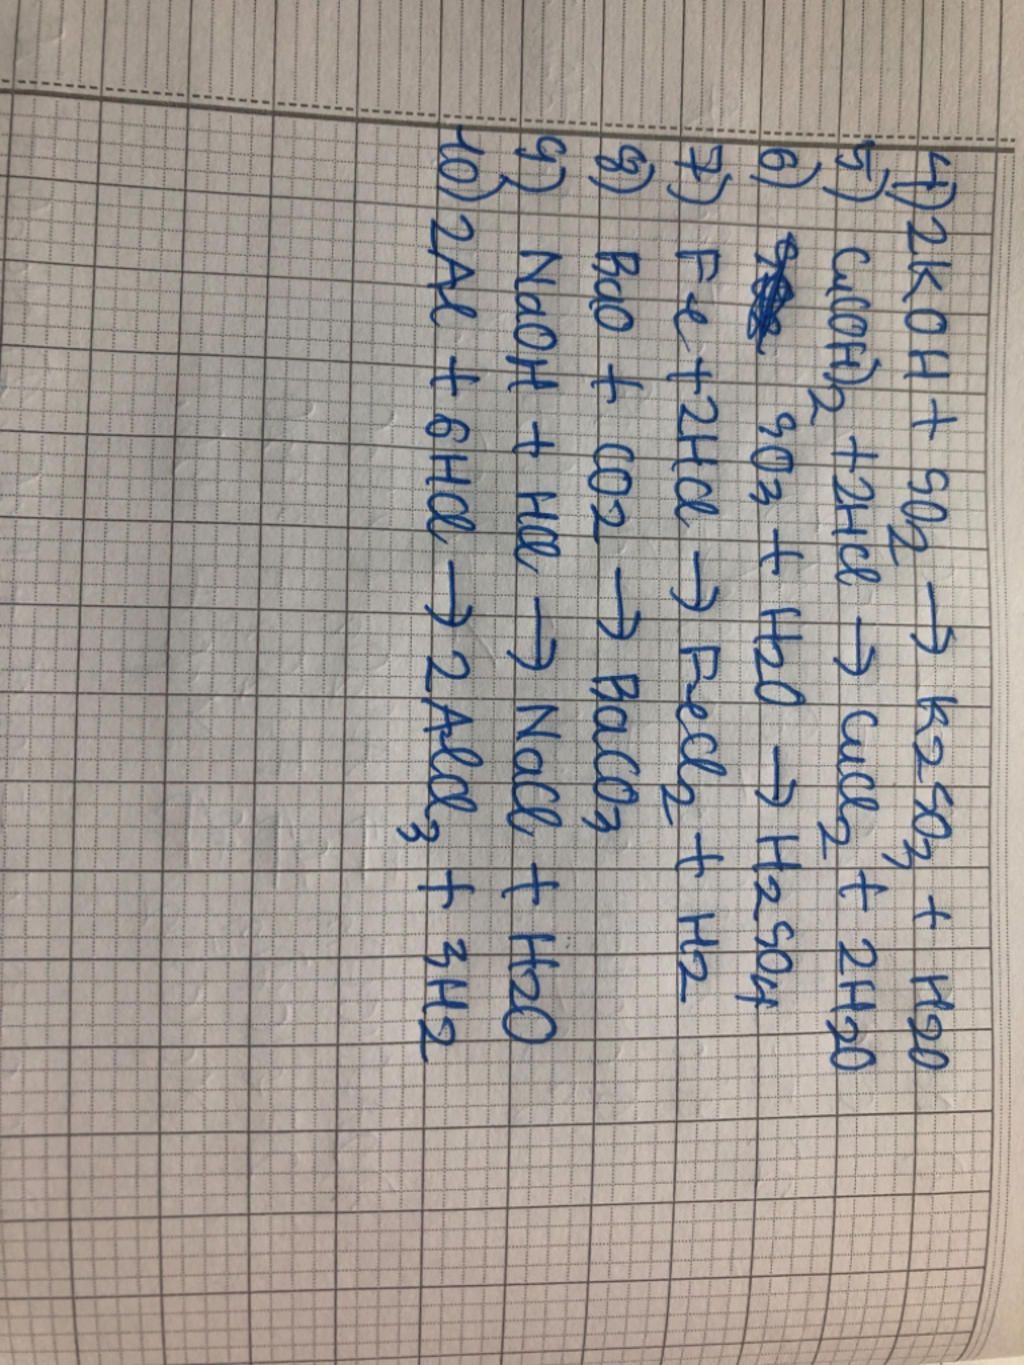 4) 2KOH + SO2 → K2SO3 + H2O
5) Cu(OH)2 + 2HCl → CuCl2 + 2H2O
6) SO3 + H2O → H2SO4
7) Fe + 2HCl → FeCl2 + H2
8) BaO + CO2 → BaCO3
9) NaOH + HCl → NaCl + H2O
10) 2Al + 6HCl → 2AlCl3 + 3H2